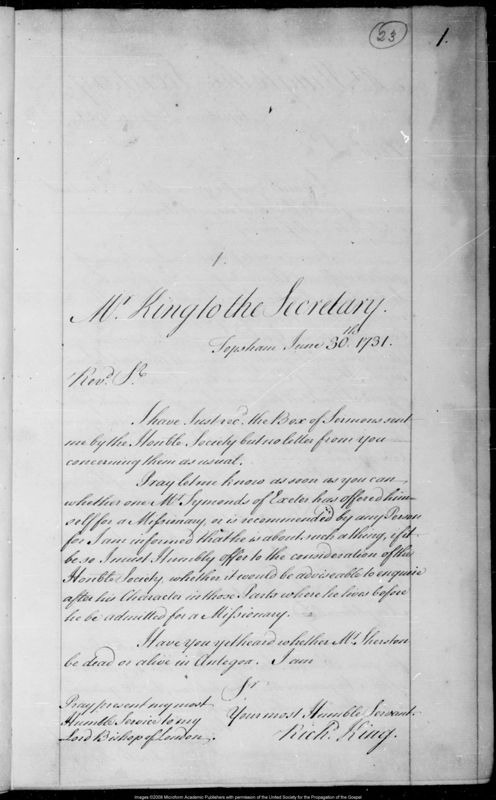 23
1.
1.
Mr. King to the Secretary.
Topsham June 30th. 1731.
Revd. Sr.
I have Just recd. the Box of Sermons sent
me by the Honble Society but no letter from you
concerning them as usual.
Pray let me know as soon as you can,
whether one Mr. Symonds of Exeter has offered him-
self for a Missionary, or is recommended by any Person
for I am informed that he is about such a thing, & if it
be so I must Humbly offer to the consideration of the
Honble Society, whether it would be adviseable to enquire
after his Character in those Parts where he lives before
he be admitted for a Missionary.
Have you yet heard whether Mr. Sherston
be dead or alive in Antegoa. I am
Sr.
Pray present my most
Humble Service to my
Lord Bishop of London.
Your most Humble Servant.
Richd. King.
Images ©2008 Microform Academic Publishers with permission of the United Society for the Propagation of the Gospel